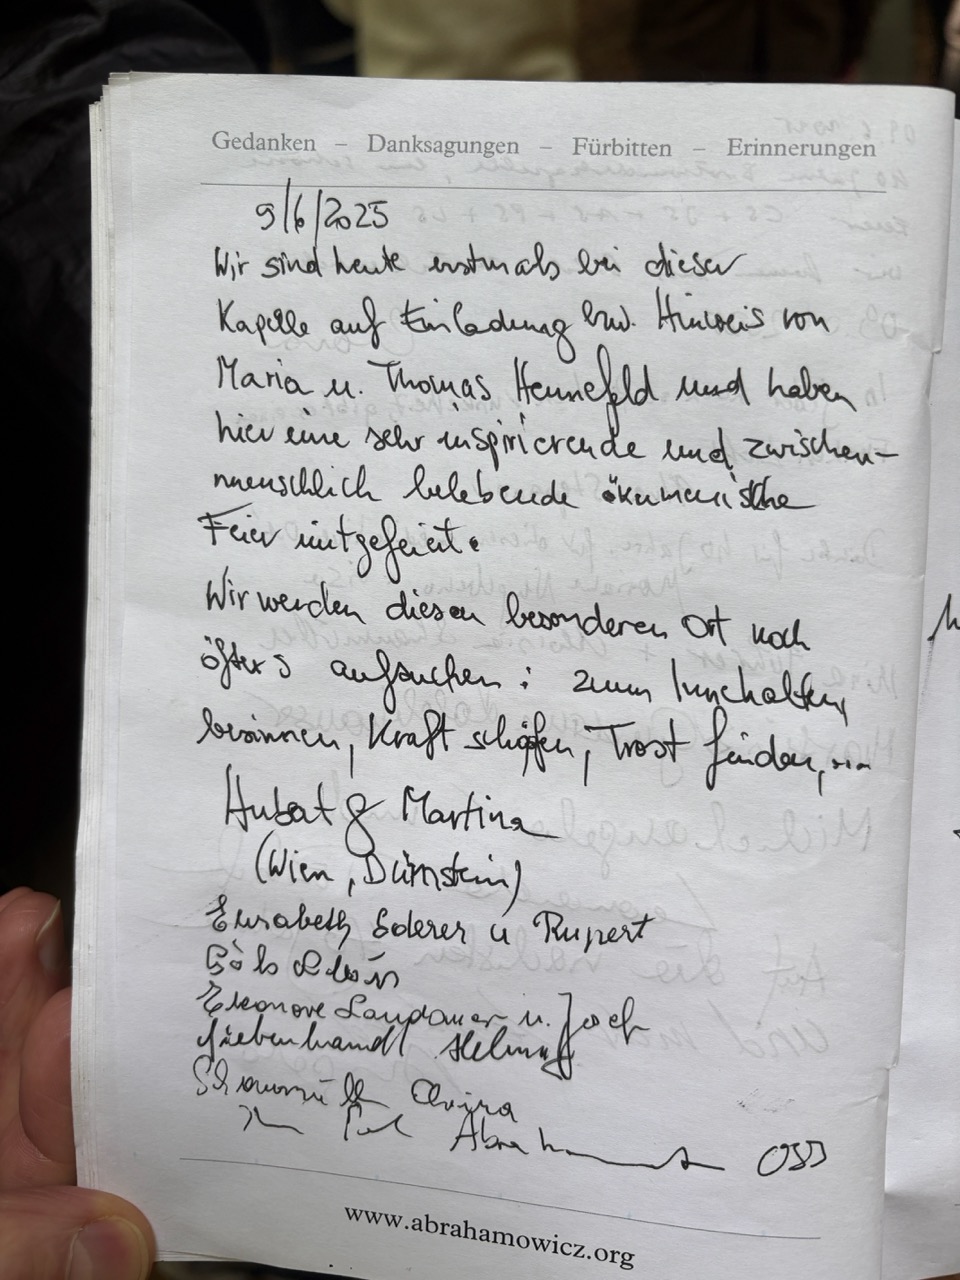 Gedanken – Danksagungen – Fürbitten – Erinnerungen
9/6/2025
Wir sind heute erstmals bei dieser
Kapelle auf Einladung bzw. Hinweis von
Maria u. Thomas Hennefeld und haben
hier eine sehr inspirierende und zwischen-
menschlich belebende ökumenische
Feier mitgefeiert.
Wir werden diesen besonderen Ort noch
öfters aufsuchen: zum Innehalten,
besinnen, Kraft schöpfen, Trost finden, ...
Hubert & Martina
(Wien, Dürnstein)
Elisabeth Ederer u Rupert
Eleonore Landauer u. Joch
Helmut
Elvira
Abraham
www.abrahamowicz.org